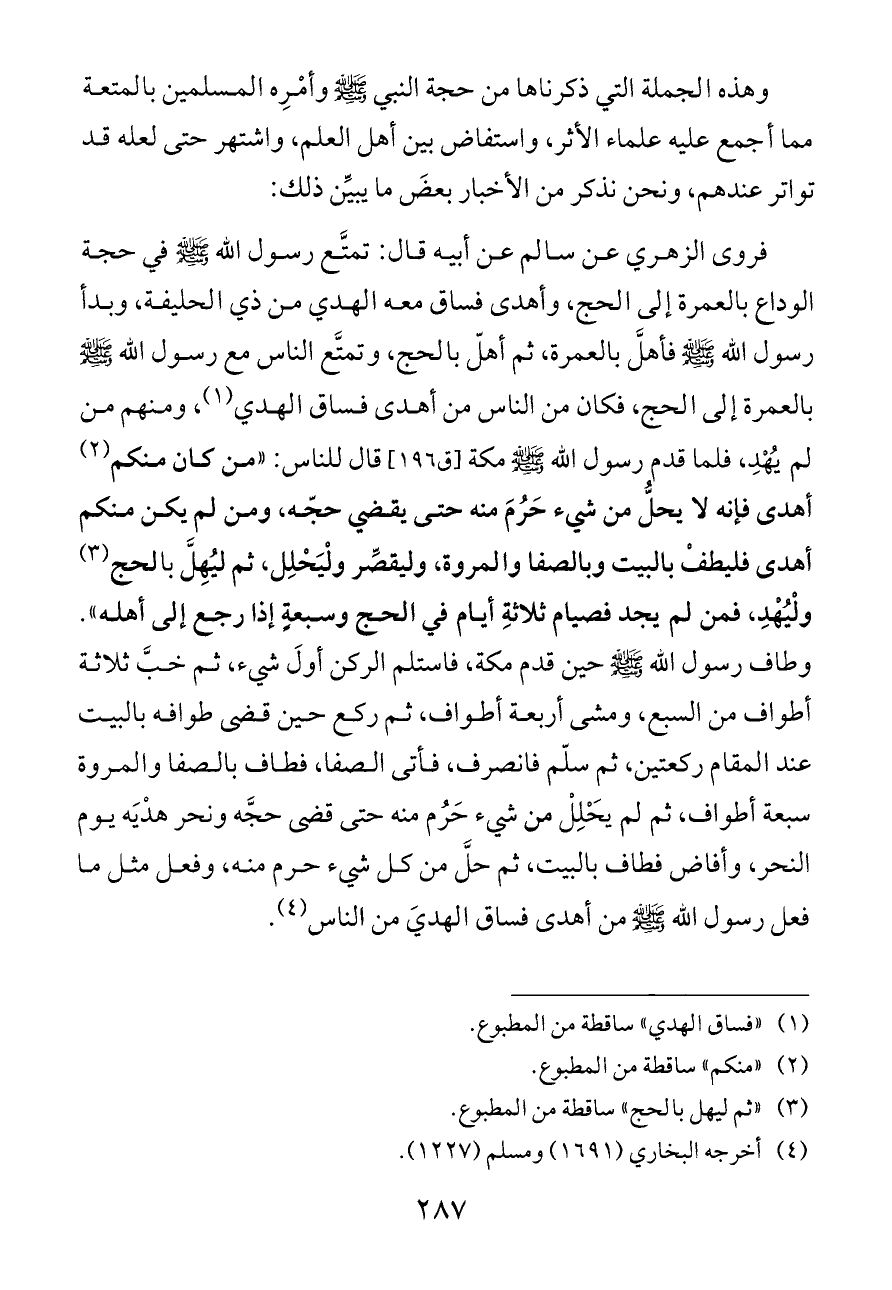 وهذه الجملة التي ذكرناها من حجة النبي ﷺ وأمْرِه المسلمين بالمتعة
مما أجمع عليه علماء الأثر، واستفاض بين أهل العلم، واشتهر حتى لعله قد
تواتر عندهم، ونحن نذكر من الأخبار بعضَ ما يبيِّن ذلك:
فروى الزهري عن سالم عن أبيه قال: تمتَّع رسول الله ﷺ في حجة
الوداع بالعمرة إلى الحج، وأهدى فساق معه الهدي من ذي الحليفة، وبدأ
رسول الله ﷺ فأهلَّ بالعمرة، ثم أهلّ بالحج، وتمتَّع الناس مع رسول الله ﷺ
بالعمرة إلى الحج، فكان من الناس من أهدى فساق الهدي(١)، ومنهم من
لم يُهْدِ، فلما قدم رسول الله ﷺ مكة [ق١٩٦] قال للناس: «من كان منكم(٢)
أهدى فإنه لا يحلُّ من شيء حَرُمَ منه حتى يقضي حجّه، ومن لم يكن منكم
أهدى فليطفْ بالبيت وبالصفا والمروة، وليقصِّر ولْيَحْلِل، ثم ليُهِلَّ بالحج(٣)
ولْيُهْدِ، فمن لم يجد فصيام ثلاثةِ أيام في الحج وسبعةٍ إذا رجع إلى أهله».
وطاف رسول الله ﷺ حين قدم مكة، فاستلم الركن أولَ شيء، ثم خبَّ ثلاثة
أطواف من السبع، ومشى أربعة أطواف، ثم ركع حين قضى طوافه بالبيت
عند المقام ركعتين، ثم سلّم فانصرف، فأتى الصفا، فطاف بالصفا والمروة
سبعة أطواف، ثم لم يَحْلِلْ من شيء حَرُم منه حتى قضى حجَّه ونحر هدْيَه يوم
النحر، وأفاض فطاف بالبيت، ثم حلَّ من كل شيء حرم منه، وفعل مثل ما
فعل رسول الله ﷺ من أهدى فساق الهديَ من الناس(٤).
(١) «فساق الهدي» ساقطة من المطبوع.
(٢) «منكم» ساقطة من المطبوع.
(٣) «ثم ليهل بالحج» ساقطة من المطبوع.
(٤) أخرجه البخاري (١٦٩١) ومسلم (١٢٢٧).
٢٨٧